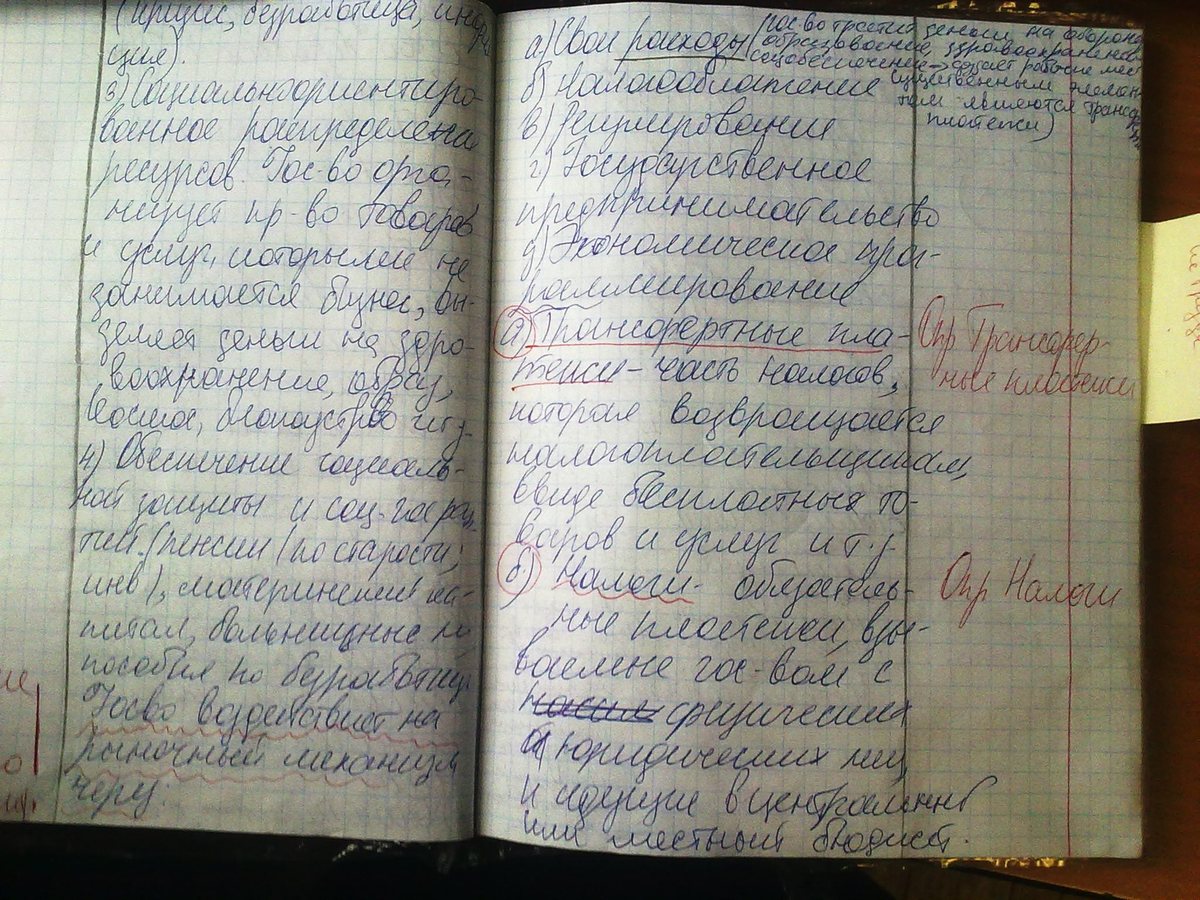 (кризис, безработица, инфля
ция).
3) Социальноориентиро-
ванное распределение
ресурсов. Гос-во орга-
низует пр-во товаров
и услуг, которыми не
занимается бизнес, вы-
деляет деньги на здра-
воохранение, образ,
космос, благоустр-во и т.д.
4) Обеспечение социаль-
ной защиты и соц-гаран-
тий. (пенсии (по старости,
инв), материнский ка-
питал, больничные
пособия по безработице
Гос-во воздействует на
рыночный механизм
через:
а) Свои расходы (гос-во тратит деньги на оборону
образование, здравоохранение
соцобеспечение → создаёт рабочие мест
существенным элемен-
том являются трансф
платежи)
б) Налогообложение
в) Регулирование
г) Государственное
предпринимательство
д) Экономическое прог-
раммирование
а) Трансфертные пла-
тежи - часть налогов,
которая возвращается
налогоплательщикам,
ввиде бесплатных то-
варов и услуг и т.д.
б) Налоги - обязатель-
ные платежи, взы-
ваемые гос-вом с
физических
и юридических лиц,
и идущие в центральный
или местный бюджет.
Опр Трансфер-
ные платежи
Опр Налоги